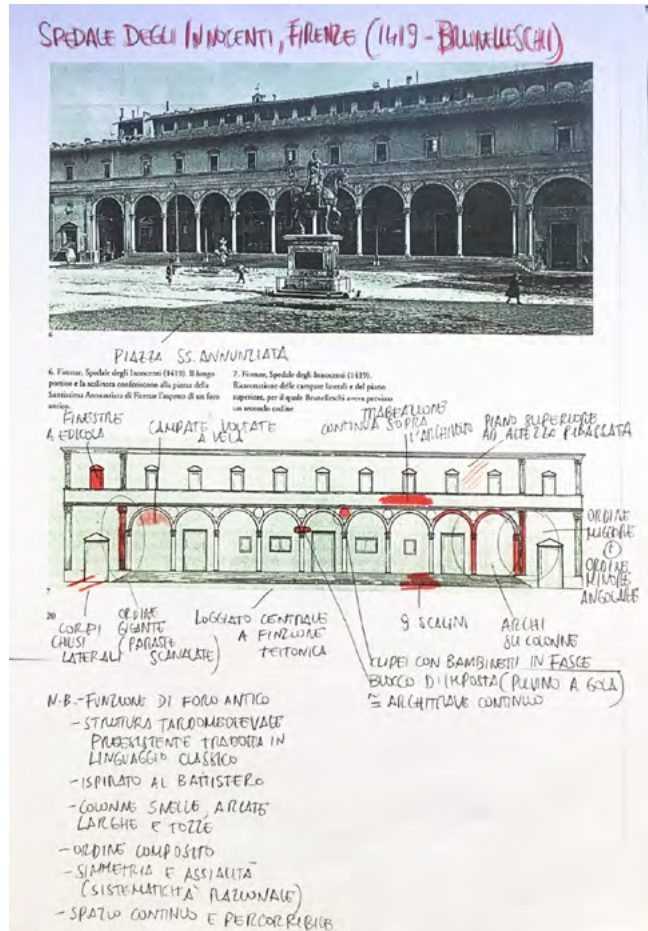 SPEDALE DEGLI INNOCENTI, FIRENZE (1419 - BRUNELLESCHI)
6
PIAZZA SS. ANNUNZIATA
6. Firenze, Spedale degli Innocenti (1419). Il lungo
portico e la scalinata conferiscono alla piazza della
Santissima Annunziata di Firenze l'aspetto di un foro
antico.
7. Firenze, Spedale degli Innocenti (1419).
Ricostruzione delle campate laterali e del piano
superiore, per il quale Brunelleschi aveva previsto
un secondo ordine.
FINESTRE
A EDICOLA
CAMPATE VOLTATE
A VELA
TRABEAZIONE
CONTINUA SOPRA
L'ARCHIVOLTO
PIANO SUPERIORE
AD ALTEZZA RIBASSATA
ORDINE
MAGGIORE
E
ORDINE
MINORE
ANGOLARE
7
20
CORPI
CHIUSI
LATERALI
ORDINE
GIGANTE
(PARASTE
SCANALATE)
LOGGIATO CENTRALE
A FINZIONE
TETTONICA
9 SCALINI
ARCHI
SU COLONNE
CLIPEI CON BAMBINETTI IN FASCE
BLOCCO DI IMPOSTA (PULVINO A GOLA)
≅ ARCHITRAVE CONTINUO
N.B. - FUNZIONE DI FORO ANTICO
- STRUTTURA TARDOMEDIEVALE
PREESISTENTE TRADOTTA IN
LINGUAGGIO CLASSICO
- ISPIRATO AL BATTISTERO
- COLONNE SNELLE, ARCATE
LARGHE E TOZZE
- ORDINE COMPOSITO
- SIMMETRIA E ASSIALITÀ
(SISTEMATICITÀ RAZIONALE)
- SPAZIO CONTINUO E PERCORRIBILE